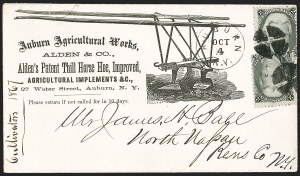 Auburn Agricultural Works,
ALDEN & CO.,
Alden's Patent Thill Horse Hoe, Improved,
AGRICULTURAL IMPLEMENTS &C.,
27 Water Street, Auburn, N. Y.
Please return if not called for in 10 days.
AUBURN
OCT
4
N.Y.
Mr James A. Sage
North
Rens Co N.Y.
Cultivator 1867